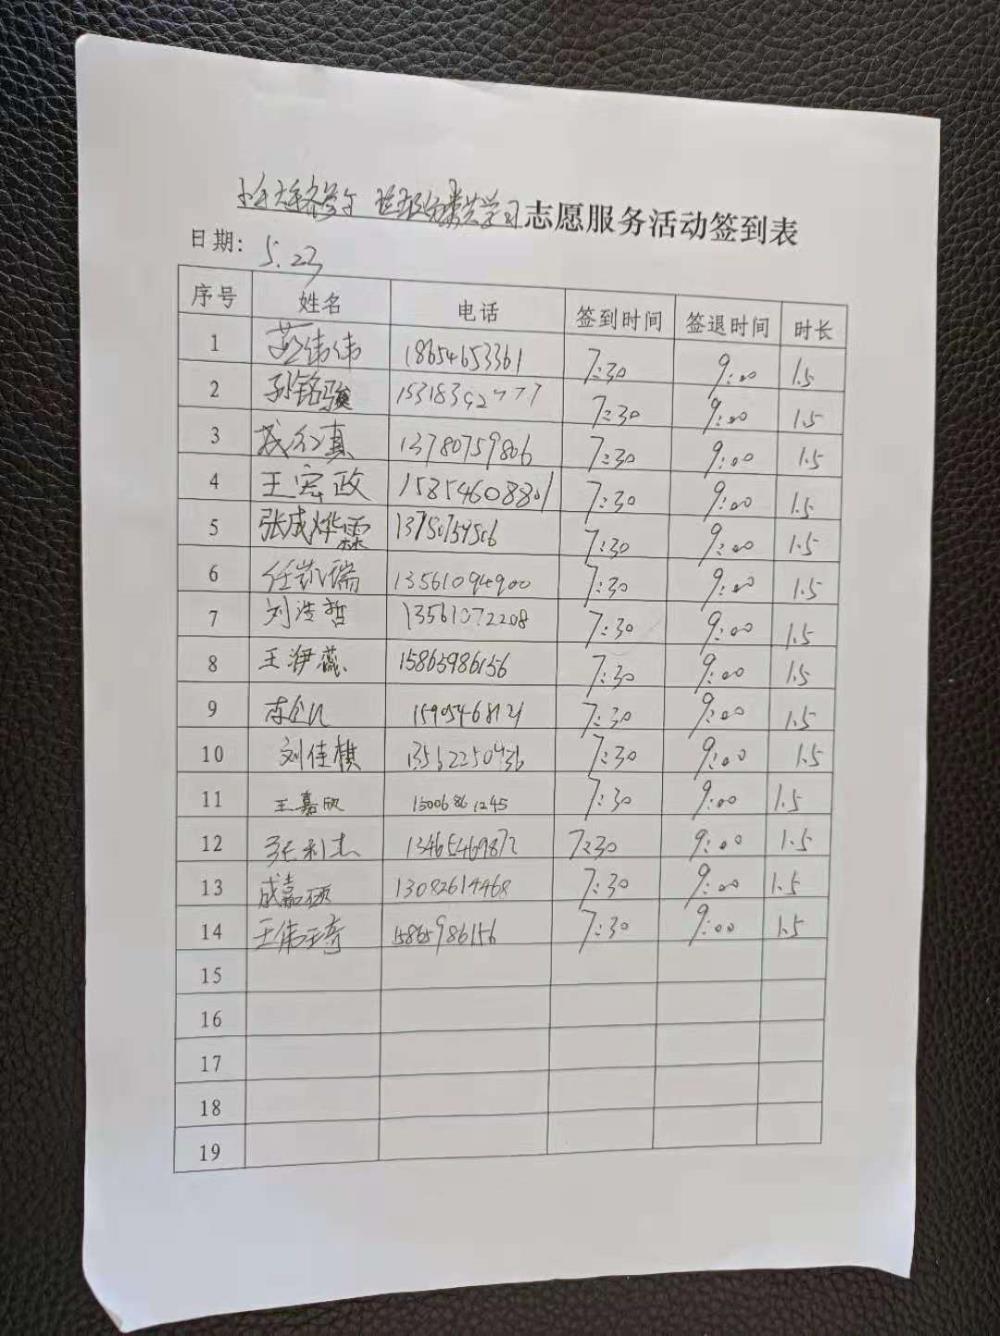 志愿服务活动签到表
日期: 5.23
序号 姓名 电话 签到时间 签退时间 时长
1 伟伟 18654653361 7:30 9:00 1.5
2 孙铭骏 7:30 9:00 1.5
3 真 13780759806 7:30 9:00 1.5
4 王宏政 15854608801 7:30 9:00 1.5
5 张成烨霖 7:30 9:00 1.5
6 任凯瑞 13561094900 7:30 9:00 1.5
7 刘浩哲 13561072208 7:30 9:00 1.5
8 王伊蕊 15865986156 7:30 9:00 1.5
9 15905468121 7:30 9:00 1.5
10 刘佳棋 7:30 9:00 1.5
11 王嘉欣 15006861245 7:30 9:00 1.5
12 张利杰 13465469872 7:30 9:00 1.5
13 成嘉硕 13082614468 7:30 9:00 1.5
14 王伟 15865986156 7:30 9:00 1.5
15
16
17
18
19